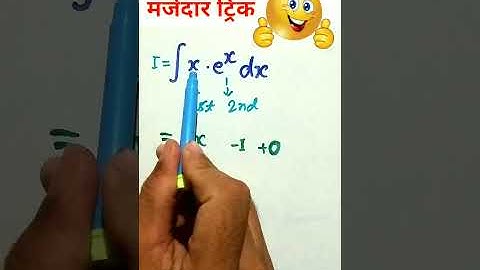 मजेदार ट्रिक
I = ∫ x · eˣ dx
2nd
= x -1 +0